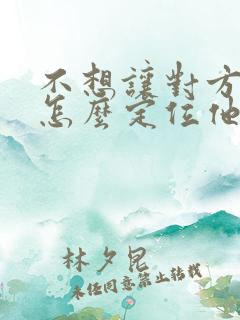 不想讓對方
怎麼定位他
林夕昆
未經同意禁止轉載